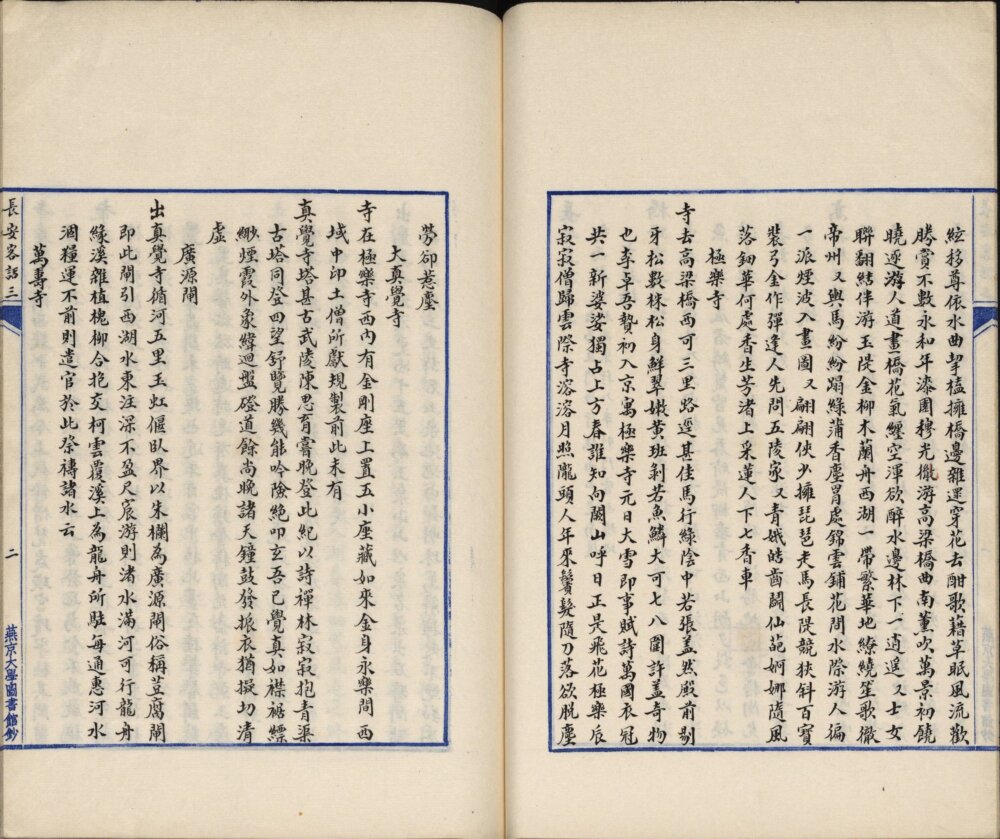 絃移尊依水曲挈榼擁橋邊雜遝穿花去酣歌藉草眠風流歡
勝賞不數永和年漆園穆光徹游高梁橋曲南薰吹萬景初饒
曉逐游人道畫橋花氣纏空渾欲醉水邊林下一逍遥又士女
聯翩結伴游玉隄金柳木蘭舟西湖一帶繁華地繚繞笙歌徹
帝州又輿馬紛紛蹋綠蒲香塵買處錦雲鋪花間水際游人徧
一派煙波入畫圖又翩翩俠少擁琵琶走馬長隄競狹斜百寶
裝弓金作彈逢人先問五陵家又青娥皓齒鬪仙葩婀娜隨風
落鈿華何處香生芳渚上采蓮人下七香車
極樂寺
寺去高梁橋西可三里路逕甚佳馬行綠陰中若張蓋然殿前剔
牙松數株松身鮮翠嫩黃班剥若魚鱗大可七八圍許蓋奇物
也李卓吾贄初入京寓極樂寺元日大雪即事賦詩萬國衣冠
共一新婆娑獨占上方春誰知向闕山呼日正是飛花極樂辰
寂寂僧歸雲際寺溶溶月照隴頭人年來鬢髮隨刀落欲脱塵
勞卻惹塵
大真覺寺
寺在極樂寺西内有金剛座上置五小座藏如來金身永樂間西
域中印土僧所獻規製前此未有
真覺寺塔甚古武陵陳思育嘗晚登此紀以詩禪林寂寂抱青渠
古塔同登四望舒覽勝幾能吟險絶叩玄吾已覺真如襟裾縹
緲煙霞外象緯迴盤磴道餘尚晚諸天鐘鼓發振衣猶擬切清
虛
廣源閘
出真覺寺循河五里玉虹偃臥界以朱欄為廣源閘俗稱荳腐閘
即此閘引西湖水東注深不盈尺宸游則渚水滿河可行龍舟
緣溪雜植槐柳合抱交柯雲覆溪上為龍舟所駐每通惠河水
涸糧運不前則遣官於此祭禱諸水云
萬壽寺
長安客話三
二
燕京大學圖書館鈔